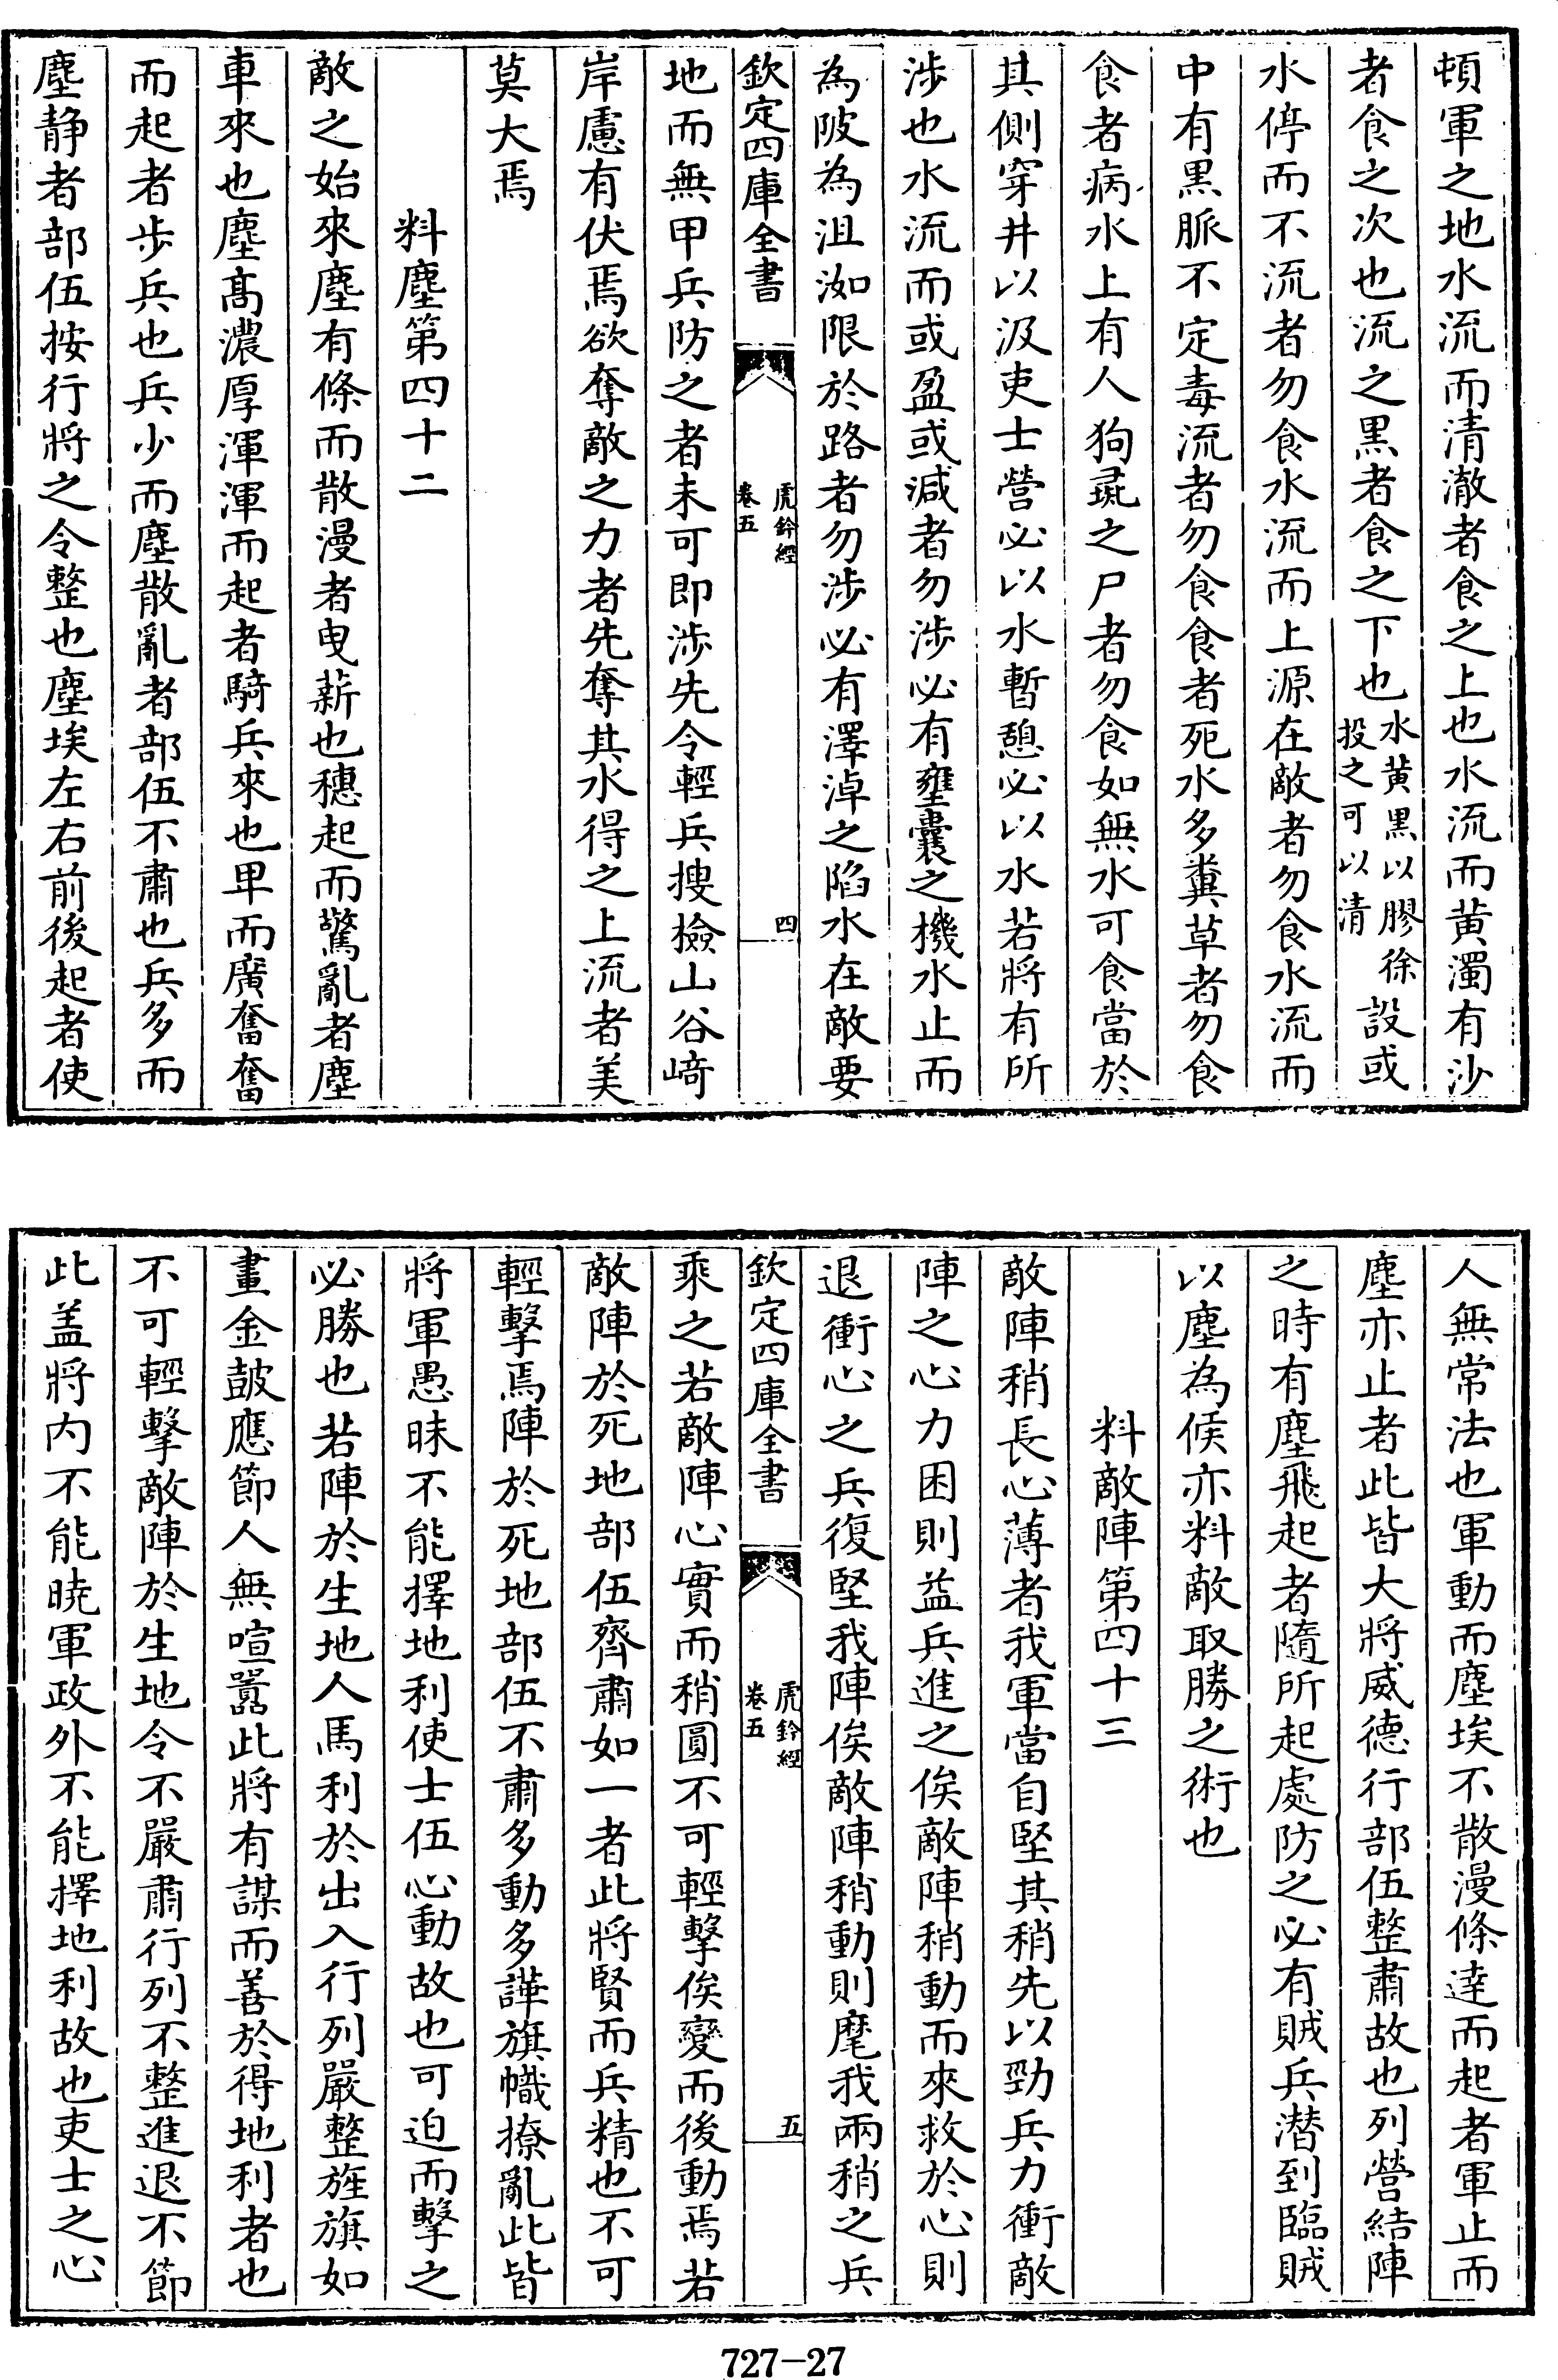 頓軍之地水流而清澈者食之上也水流而黄濁有沙
者食之次也流之黒者食之下也水黄黒以膠徐投之可以清設或
水停而不流者勿食水流而上源在敵者勿食水流而
中有黒脈不定毒流者勿食食者死水多糞草者勿食
食者病水上有人狗彘之尸者勿食如無水可食當於
其側穿井以汲吏士營必以水暫憩必以水若將有所
涉也水流而或盈或減者勿涉必有壅囊之機水止而
為陂為沮洳限於路者勿涉必有澤淖之陷水在敵要
欽定四庫全書
虎鈐經
卷五
四
地而無甲兵防之者未可即涉先令輕兵搜檢山谷﨑
岸慮有伏焉欲奪敵之力者先奪其水得之上流者美
莫大焉
料塵第四十二
敵之始來塵有條而散漫者曳薪也穗起而驚亂者塵
車來也塵髙濃厚渾渾而起者騎兵來也卑而廣奮奮
而起者步兵也兵少而塵散亂者部伍不肅也兵多而
塵静者部伍按行將之令整也塵埃左右前後起者使
人無常法也軍動而塵埃不散漫條達而起者軍止而
塵亦止者此皆大將威德行部伍整肅故也列營結陣
之時有塵飛起者隨所起處防之必有賊兵潜到臨賊
以塵為候亦料敵取勝之術也
料敵陣第四十三
敵陣稍長心薄者我軍當自堅其稍先以勁兵力衝敵
陣之心力困則益兵進之俟敵陣稍動而來救於心則
退衝心之兵復堅我陣俟敵陣稍動則麾我兩稍之兵
欽定四庫全書
虎鈐經
卷五
五
乘之若敵陣心實而稍圓不可輕擊俟變而後動焉若
敵陣於死地部伍齊肅如一者此將賢而兵精也不可
輕擊焉陣於死地部伍不肅多動多譁旗幟撩亂此皆
將軍愚昧不能擇地利使士伍心動故也可迫而擊之
必勝也若陣於生地人馬利於出入行列嚴整旌旗如
畫金鼓應節人無喧囂此將有謀而善於得地利者也
不可輕擊敵陣於生地令不嚴肅行列不整進退不節
此盖將内不能暁軍政外不能擇地利故也吏士之心
727-27